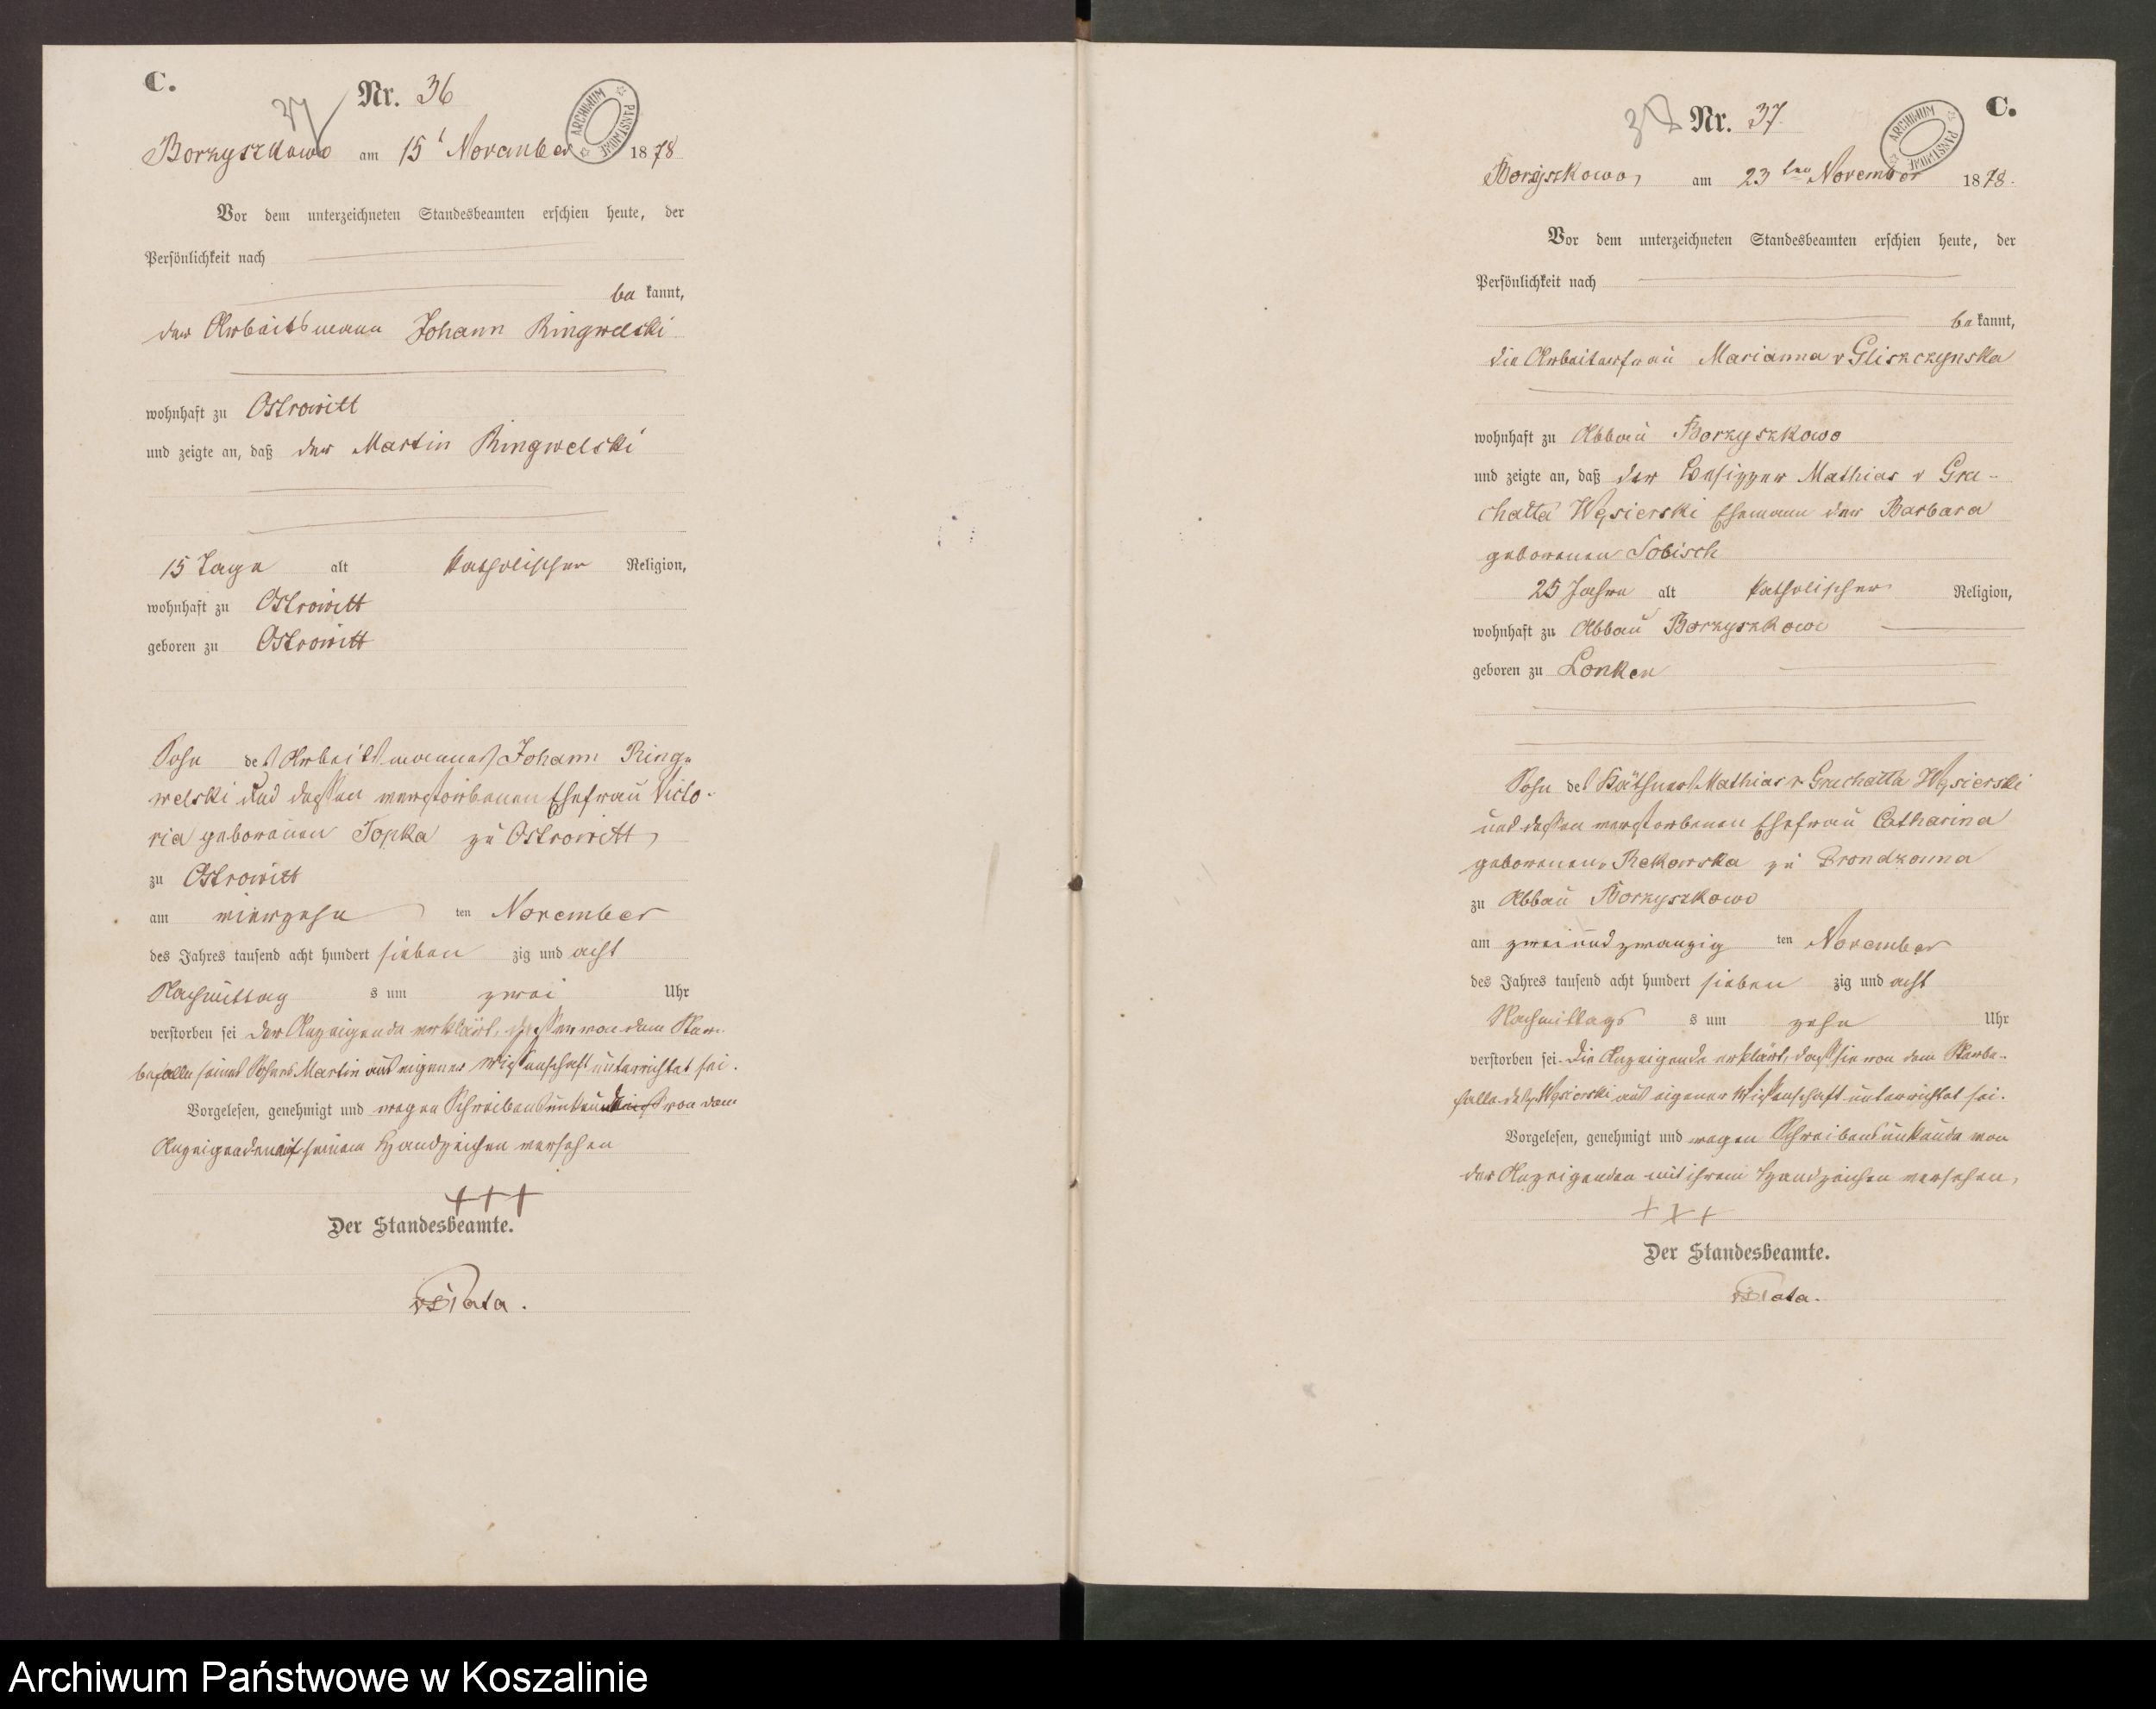 C.
Nr. 36
37
ARCHIWUM PAŃSTWOWE
Borzyszkowo am 15t November 1878
Vor dem unterzeichneten Standesbeamten erschien heute, der
Persönlichkeit nach
be kannt,
der Arbeitsmann Johann Ringwelski
wohnhaft zu Ostrowitt
und zeigte an, daß der Martin Ringwelski
15 Tage alt katholischer Religion,
wohnhaft zu Ostrowitt
geboren zu Ostrowitt
Sohn des Arbeitsmannes Johann Ring-
welski und dessen verstorbenen Ehefrau Victo-
ria geborenen Topka zu Ostrowitt,
zu Ostrowitt
am vierzehn ten November
des Jahres tausend acht hundert sieben zig und acht
Nachmittag s um zwei Uhr
verstorben sei Der Anzeigende erklärt, dass er von dem Ster-
befalle seines Sohnes Martin aus eigener Wissenschaft unterrichtet sei.
Vorgelesen, genehmigt und wegen Schreibensunkunde von dem
Anzeigenden mit seinem Handzeichen versehen
+++
Der Standesbeamte.
C.
38
Nr. 37.
ARCHIWUM PAŃSTWOWE
Borzyszkowo, am 23ten November 1878.
Vor dem unterzeichneten Standesbeamten erschien heute, der
Persönlichkeit nach
be kannt,
die Arbeiterfrau Marianna v Gliszczynska
wohnhaft zu Abbau Borzyszkowo
und zeigte an, daß der Besitzer Mathias v Gra-
chatta Węsierski Ehemann der Barbara
geborenen Sobisch
25 Jahre alt katholischer Religion,
wohnhaft zu Abbau Borzyszkowo
geboren zu Lonken
Sohn des Käthners Mathias v Grachatta Węsierski
und dessen verstorbenen Ehefrau Catharina
geborenen v Rekowska zu Brondzonna
zu Abbau Borzyszkowo
am zweiundzwanzig ten November
des Jahres tausend acht hundert sieben zig und acht
Nachmittags s um zehn Uhr
verstorben sei. Die Anzeigende erklärt, dass sie von dem Sterbe-
falle des v Węsierski aus eigener Wissenschaft unterrichtet sei.
Vorgelesen, genehmigt und wegen Schreibensunkunde von
der Anzeigenden mit ihrem Handzeichen versehen,
+++
Der Standesbeamte.
Archiwum Państwowe w Koszalinie